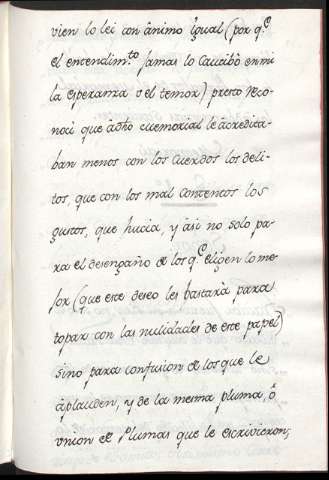 vien lo lei con ánimo igual (por q.e
el entendim.to Jamas lo Cautibô en mi
la esperanza o el temor) presto reco-
noci que â dho memorial le âcredita-
ban menos con los cuerdos los deli-
tos, que con los mal contentos los
gustos, que hucia, y âsi no solo pa-
ra el desengaño de los q.e eligen lo me-
Jor (que este deseo les bastarà para
topar con las nulidades de este papel)
sino para confusion de los que le
âplauden, y de la mesma pluma, ô
vnion de Plumas que le escrivieron;